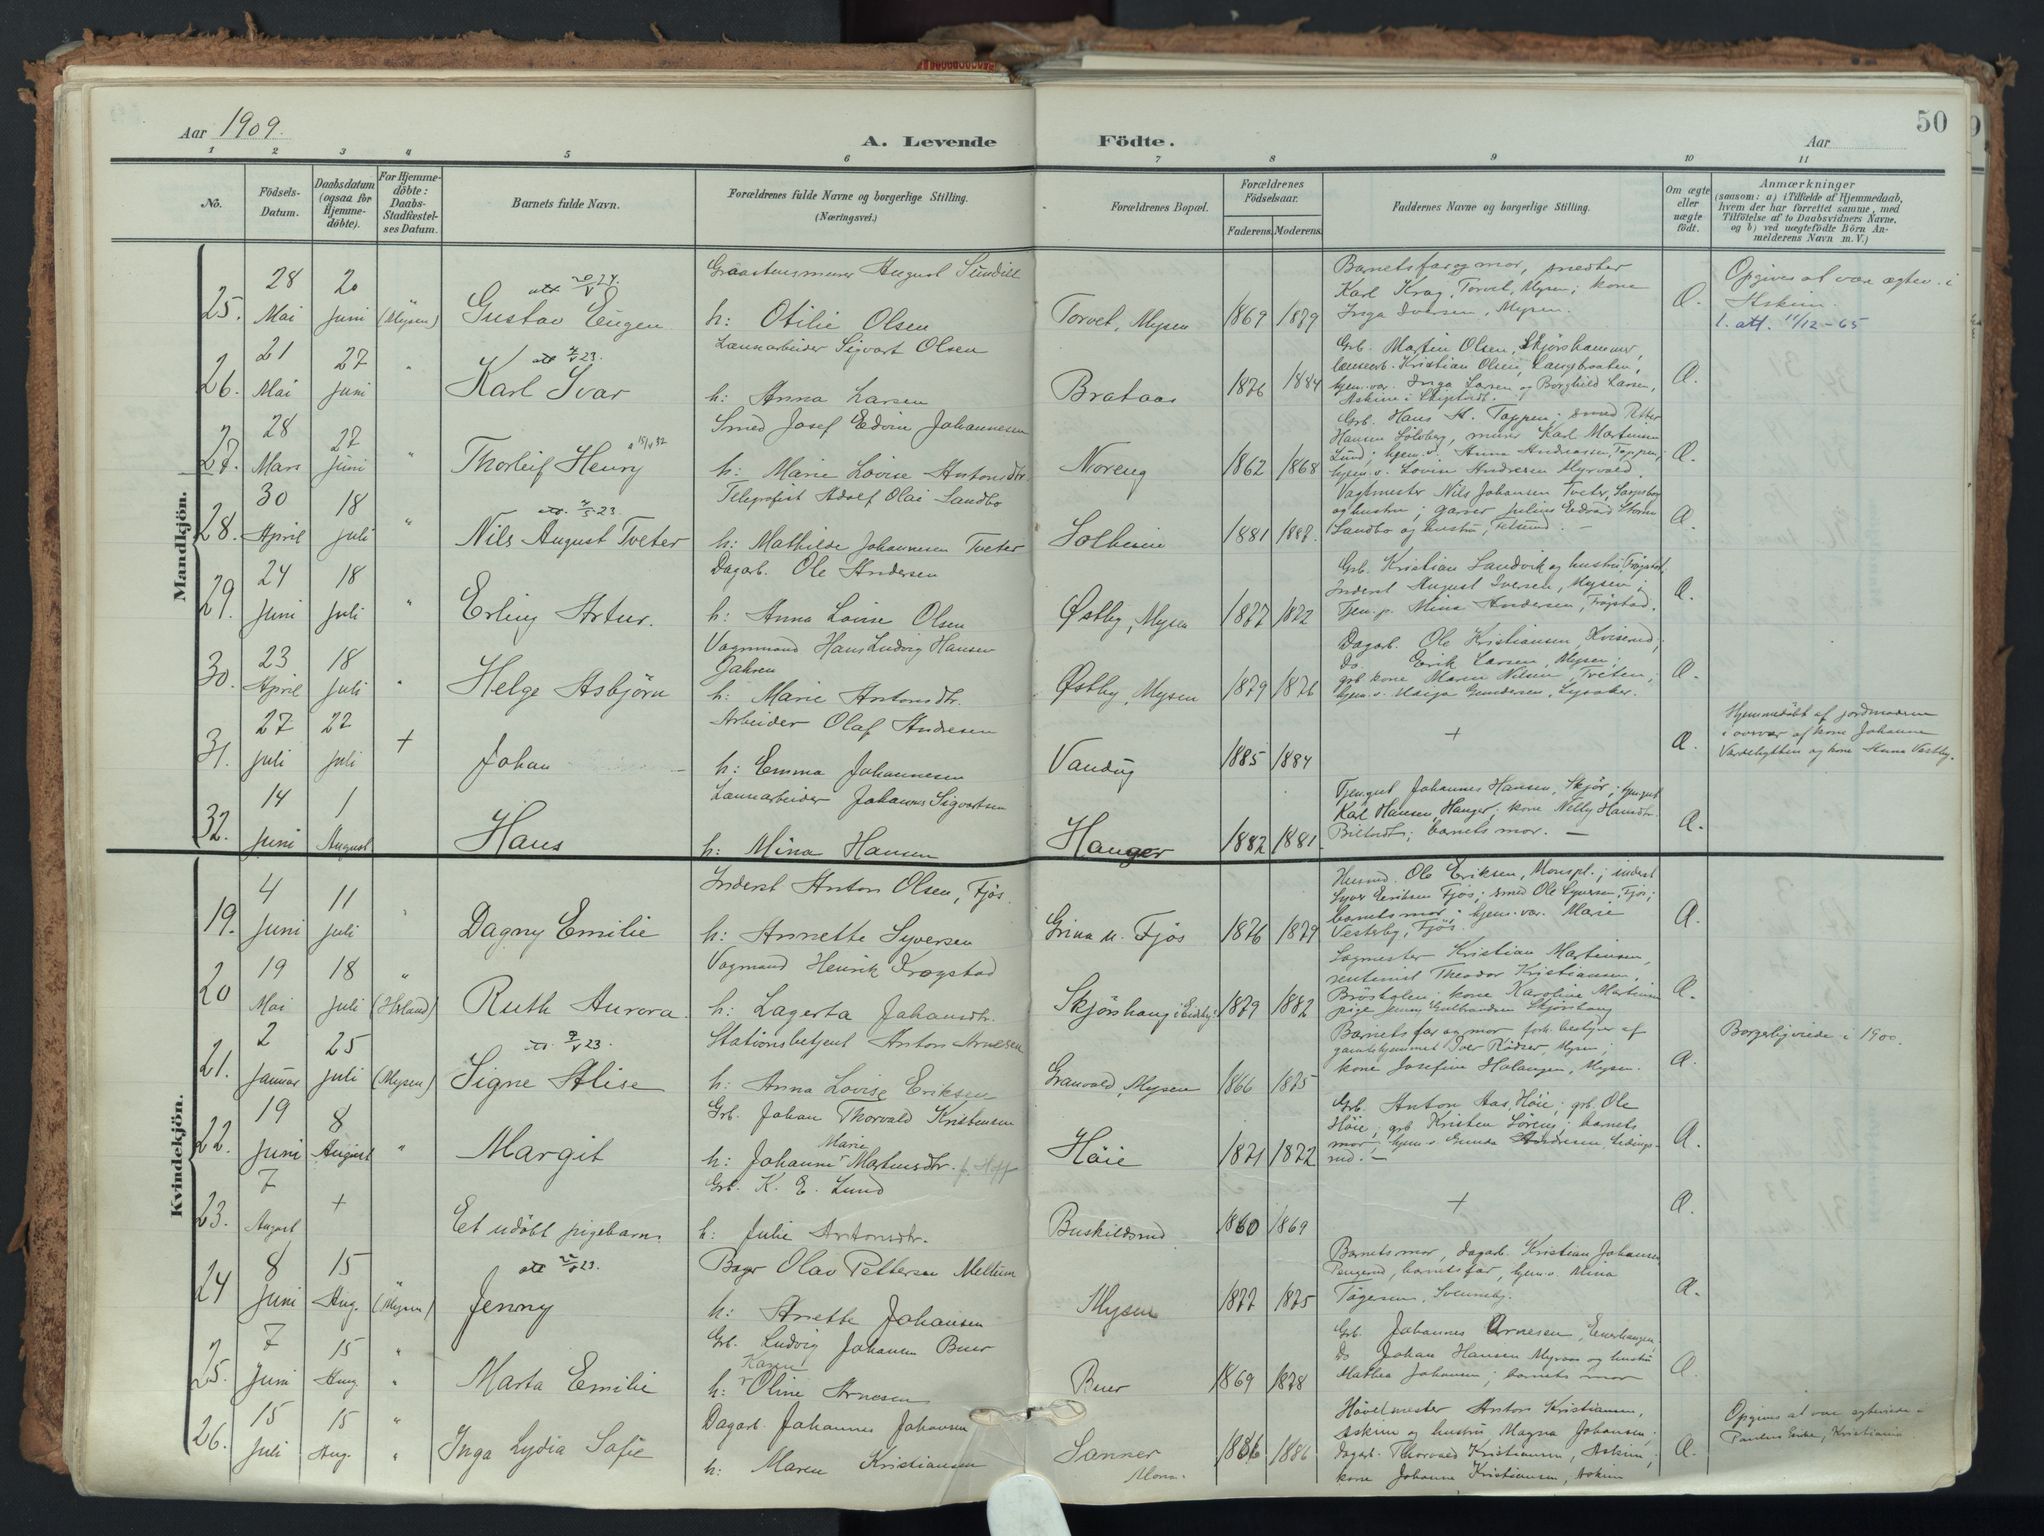 Aar 1909.
A. Levende
Födte.
Aar
50
1 2 3 4 5 6 7 8 9 10 11
No.
Födsels-Datum.
Daabsdatum (ogsaa for Hjemme-döbte).
For Hjemme-döbte: Daabs-Stadfæstel-ses Datum.
Barnets fulde Navn.
Forældrenes fulde Navne og borgerlige Stilling.
(Næringsvei.)
Forældrenes Bopæl.
Forældrenes Födselsaar.
Faderens. Moderens.
Faddernes Navne og borgerlige Stilling.
Om ægte eller uægte födt.
Anmærkninger
(saasom: a) i Tilfælde af Hjemmedaab,
hvem der har forrettet samme, med
Tilföielse af to Daabsvidners Navne,
og b) ved uægtefödte Börn An-
melderens Navn m. V.)
Mandkjön.
25. 28 Mai 20 Juni (Mysen) Gustav Eugen
h: Otilie Olsen
Torvet, Mysen 1869 1879
Barnets far og mor, snedker
Karl Krag, Torvet, Mysen; kone
Inga Iversen, Mysen.
Æ.
Opgives at være ægtev. i
Askim.
l. att. 11/12-65
26. 21 Mai 27 Juni " Karl Ivar
Sigvart Olsen
h: Anna Larsen
Brataas 1876 1884
Grb. Martin Olsen, Skjørshammer,
Kristian Olsen, Langbraaten,
Inga Larsen og Borghild Larsen,
Æ.
27. 28 Mars 27 Juni " Thorleif Henry
Smed Josef Edvin Johannesen
h: Marie Lovise Antonsdtr.
Noreng 1862 1868
Grb. Hans A. Toppen; smed Petter
Hansen Sölvberg, murer Karl Martinsen
Lund; hjem. v. Anna Andreassen, Toppen,
hjem. v. Lovise Andresen Myrvold
Æ.
28. 30 April 18 Juli " Nils August Tveter
Telegrafist Adolf Olai Sandbo
h: Mathilde Johannesen Tveter
Solheim 1881
Vagtmester Nils Johansen Tveter, Sarpsborg
og hustru; garver Julius Edvard
Sandbo og hustru,
Æ.
29. 24 Juni 18 Juli " Erling Artur.
Dagarb. Ole Andersen
h: Anna Lovise Olsen
Østby, Mysen 1877 1872
Grb. Kristian Sandvik og hustru, Trøgstad;
Inderst August Iversen, Mysen;
Tjen. p. Mina Andersen, Trøgstad.
Æ.
30. 23 April 18 Juli " Helge Asbjörn
Vognmand Hans Ludvig Hansen
h: Marie Antonsdtr.
Østby, Mysen 1879 1876
Dagarb. Ole Kristiansen, Kviserud;
Do. Erik Larsen, Mysen;
grb. kone Maren Nilsen, Tveten;
hjem. v. Gundersen, Lysaker.
Æ.
31. 27 Juli 27 Juli + Johan
Arbeider Olaf Andresen
h: Emma Johannesen
1885 1884
+
Æ.
Hjemmedöbt af jordmoderen
i nærvær af kone Johanne
og kone Anna Vestby.
32. 14 Juni 1 August Hans
Johannes Sigvartsen
h: Mina Hansen
Hanger 1882 1881
Tjen.gut Johannes Hansen, Skjør;
Karl Hansen, Hanger; kone Nelly
barnets mor. —
Æ.
Kvindekjön.
19. 4 Juni 11 Juli Dagny Emilie
Inderst Anton Olsen, Fjös.
h: Annette Syversen
Grina u. Fjös 1876 1879
Husmd. Ole Eriksen, Monspl.; inderst
Syver Eriksen Fjös; smed Ole Syversen, Fjös;
barnets mor; hjem. var. Marie
Vesterby, Fjös.
Æ.
20 19 Mai 18 Juli (Herland) Ruth Aurora
Vogmand Henrik Trøgstad
h: Lagerta Johansdtr.
Skjørshaug i Eidsberg 1879 1882
Sagmester Kristian Martinsen,
Theodor Kristiansen,
kone Karoline Martinsen
pige Jenny Gulbrandsen Skjørshaug
Æ.
21. 2 Januar 25 Juli (Mysen) Signe Alise
Stationsbetjent Anton Arnesen
h: Anna Lovise Eriksen
Granvold, Mysen 1866 1875
Barnets far og mor, forh. bestyrer af
gamlehjemmet Iver Rødser, Mysen;
kone Josefine Halangen, Mysen.
Æ.
Borgerlig viede i 1900.
22. 19 Juni 8 August " Margit
Grb. Johan Thorvald Kristensen
h: Johanne Marie Martinsdtr. f. Hoff
Høie 1871 1872
Grb. Anton Aas, Høie; grb. Ole
Høie; grb. Kristen Löreng; barnets
mor; hjem. v. Gunda Andresen,
Æ.
23. 7 August + Et udöbt pigebarn
Grb. K. E. Lund
h: Julie Antonsdtr.
Buskildsrud 1860 1869
+
Æ.
24 8 Juni 15 Aug. (Mysen) Jenny
Bager Olav Pettersen Meltum
h: Anette Johansen
Mysen 1877 1875
Barnets mor, dagarb. Kristian Johansen
barnets far, hjem. v. Mina
Æ.
25. 7 Juni 15 Aug. " Marta Emilie
Grb. Ludvig Johansen Buer
h: Karen Oline Arnesen
Buer 1869 1878
Grb. Johannes Arnesen,
Do Johan Hansen Myraas og hustru
Mathea Johansen; barnets mor
Æ.
26. 15 Juli 15 Aug. " Inga Lydia Sofie
Dagarb. Johannes Johansen
h: Maren Kristiansen
Sanner
Mona. 1886 1886
Høvelmester Anton Kristiansen,
Askim og hustru Magna Johansen;
dagarb. Thorvald Kristiansen, Askim;
kone Johanne Kristiansen, Askim
Æ.
Opgives at være
Kristiania